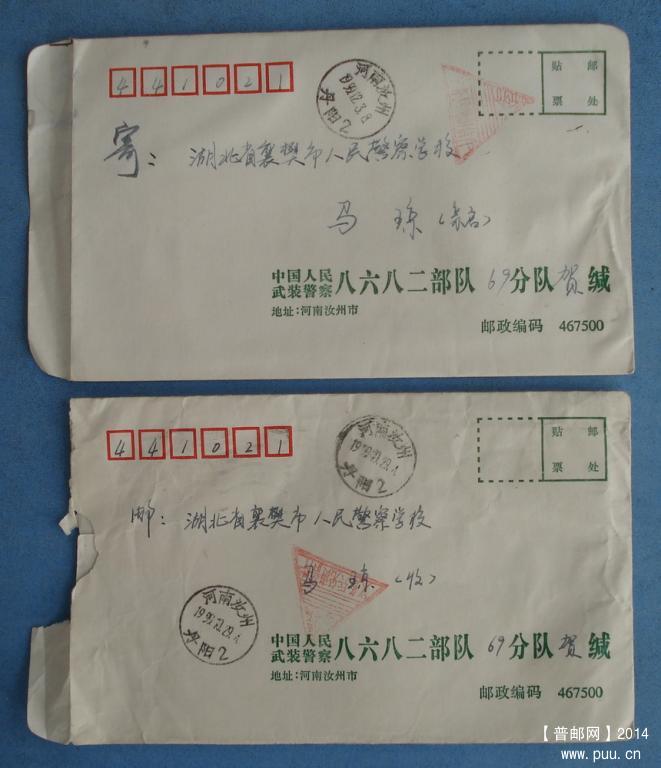 441021
河南汝州
1999.12.3.8
丹阳2
邮
贴
处
票
寄：湖北省襄樊市人民警察学校
马琼
中国人民
武装警察 八六八二部队 69分队 贺 缄
地址：河南汝州市
邮政编码 467500
441021
河南汝州
丹阳2
邮
贴
处
票
邮：湖北省襄樊市人民警察学校
马琼（收）
河南汝州
丹阳2
中国人民
武装警察 八六八二部队 69分队 贺 缄
地址：河南汝州市
邮政编码 467500
【普邮网】2014
www.puu.cn